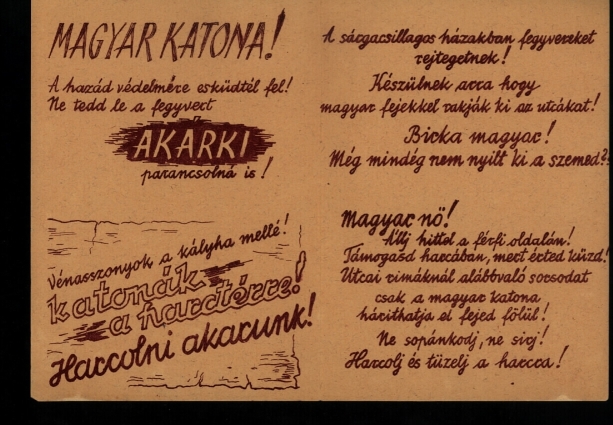 MAGYAR KATONA!
A hazád védelmére esküdtél fel!
Ne tedd le a fegyvert
AKÁRKI
parancsolná is!
Vénasszonyok a kályha mellé!
katonák
a harctérre!
Harcolni akarunk!
A sárgacsillagos házakban fegyvereket
rejtegetnek!
Készülnek arra hogy
magyar fejekkel rakják ki az utcákat!
Birka magyar!
Még mindég nem nyilt ki a szemed?!
Magyar nő!
Állj hittel a férfi oldalán!
Támogasd harcában, mert érted küzd!
Utcai rimáknál alábbvaló sorsodat
csak a magyar katona
háríthatja el fejed fölül!
Ne sopánkodj, ne sirj!
Harcolj és tüzelj a harcra!